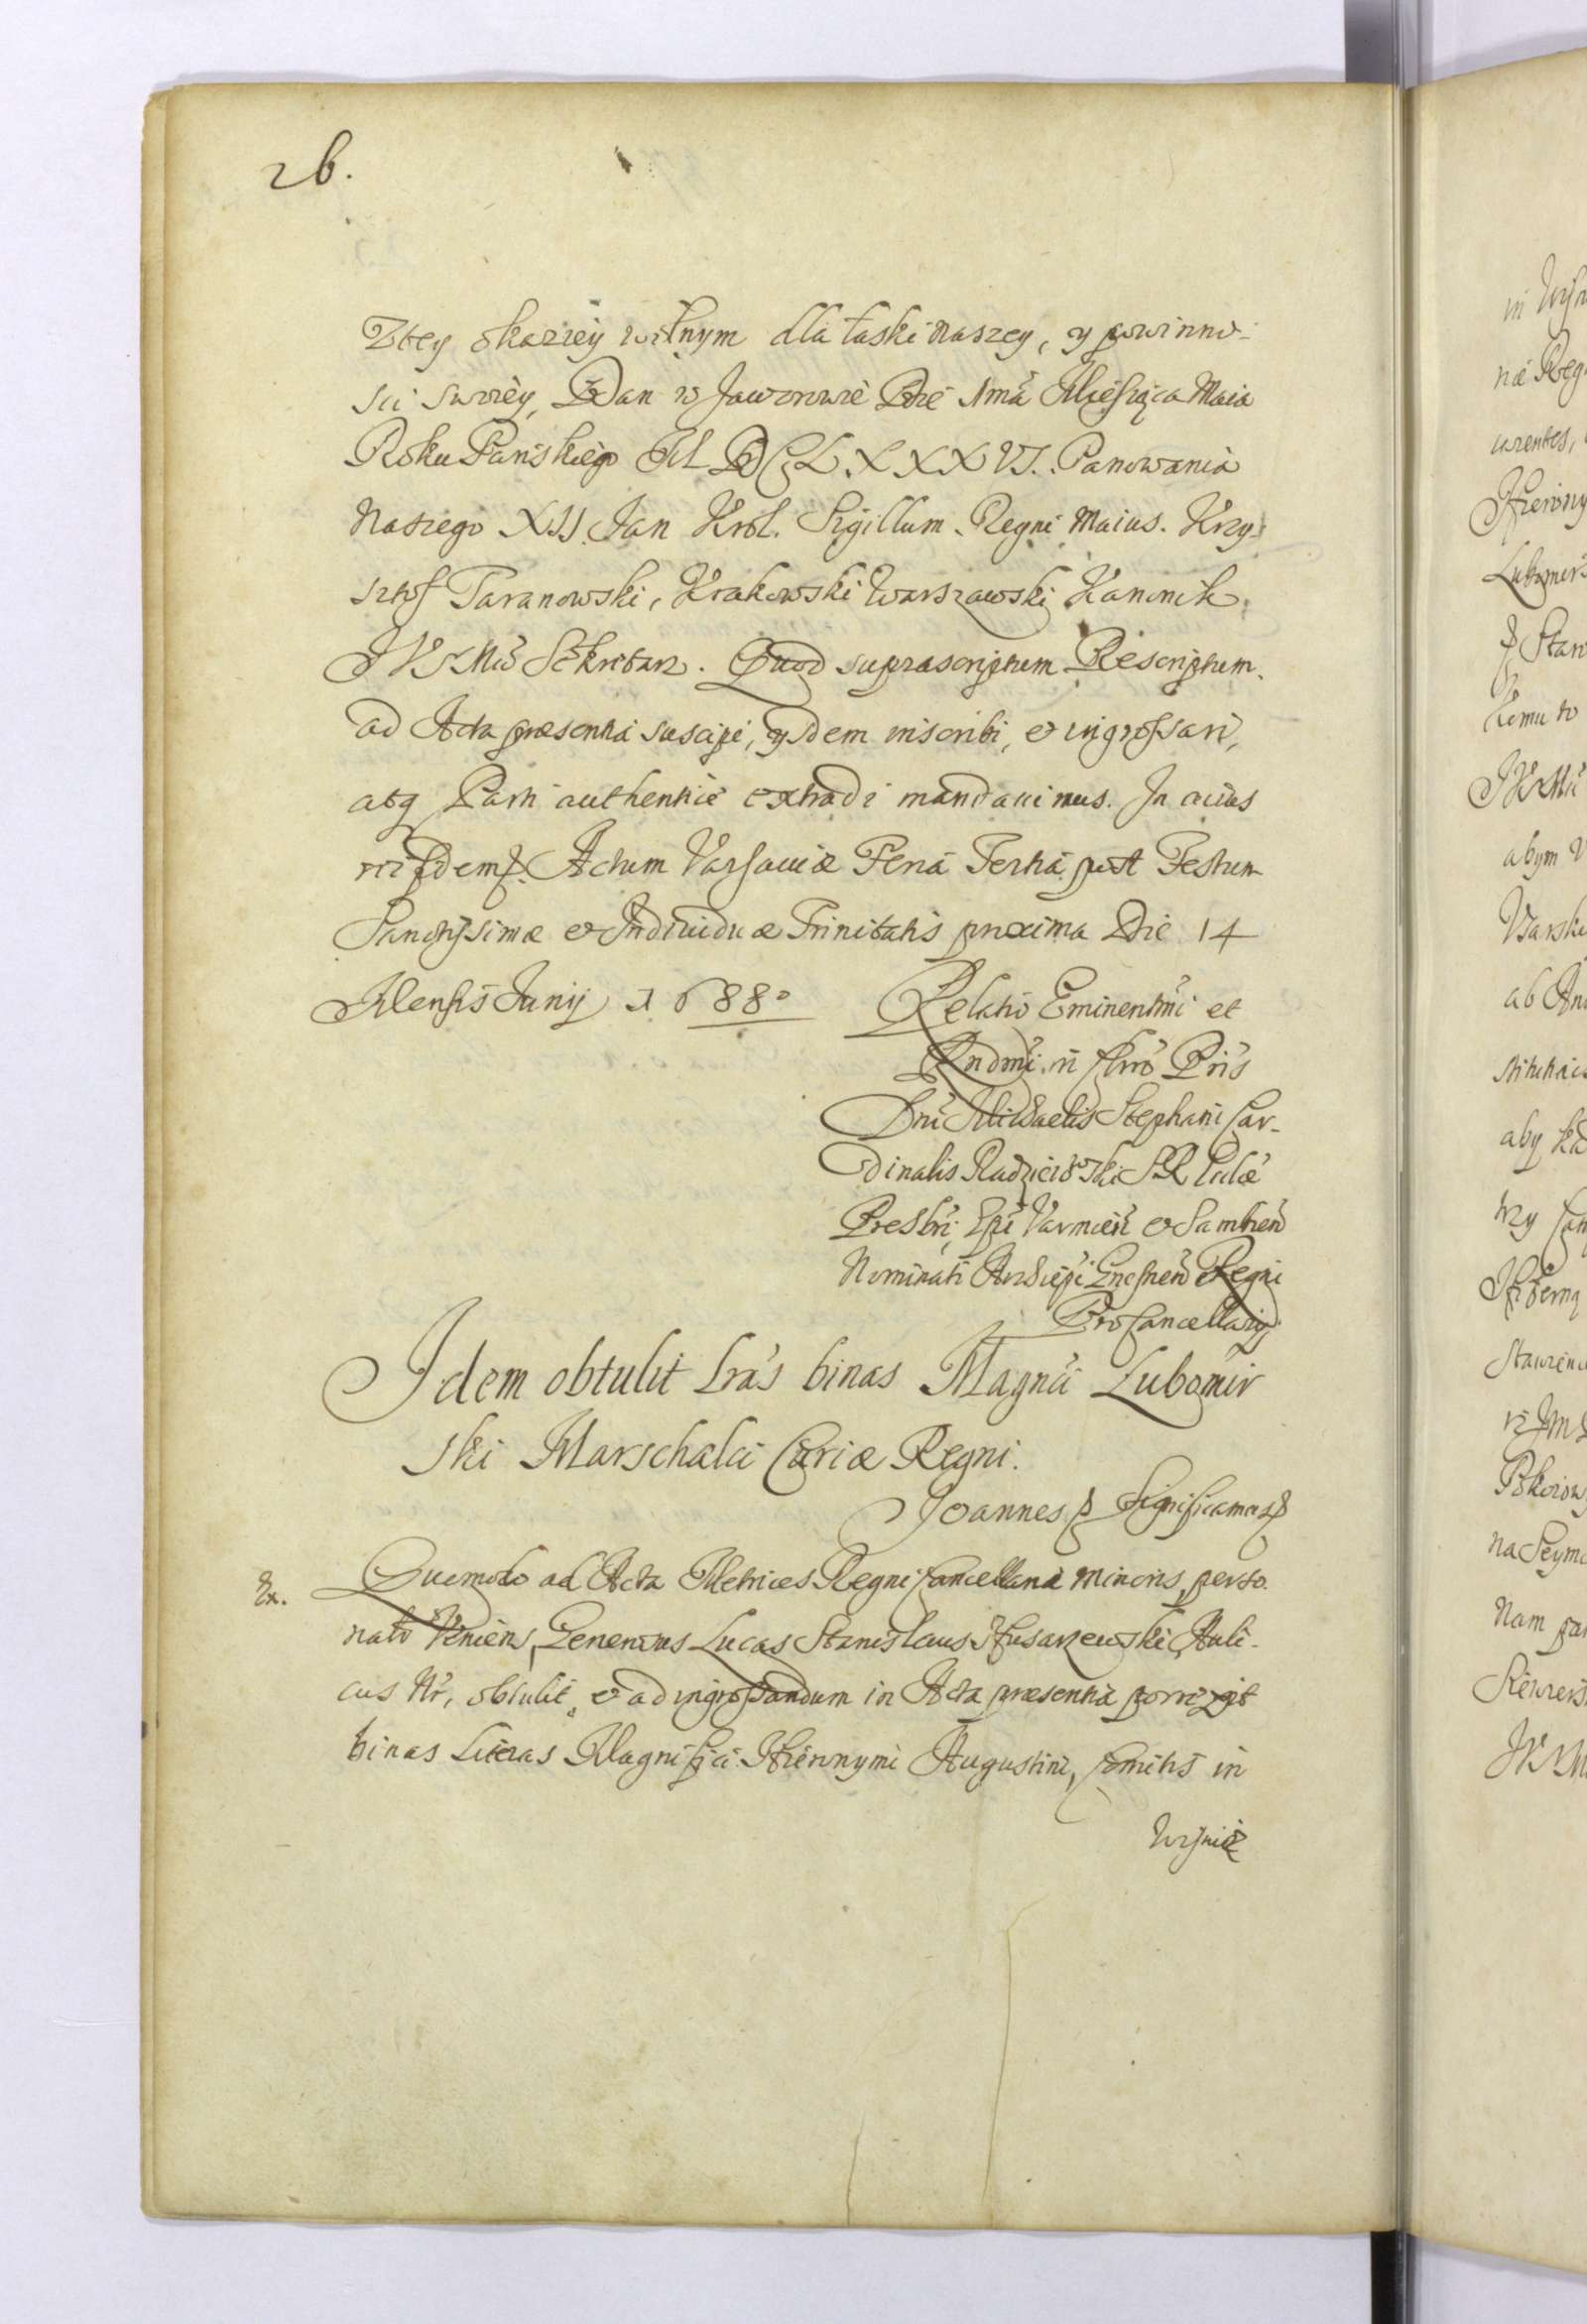 26.
Z tey okaziey wolnym dla łaski Naszey, y powinno-
sci swoiey, Dan w Jaworowie Die 1mâ Miesiąca Maia
Roku Pańskiego M DC L.XXXVI. Panowania
Naszego XII Jan Krol. Sigillum Regni Maius. Krzy-
sztof Taranowski, Krakowski Warszawski Kanonik
JKMći Sekretarz. Quod suprascriptum Rescriptum
ad Acta præsentia suscipi, ijsdem inscribi, et ingrossari,
atq Parti authentice extradi mandavimus. In cuius
rei fidem. Actum Varsaviæ Feria Tertia post Festum
Sanctissimæ et Individuæ Trinitatis proxima Die 14
Mensis Junij 1688°
Relatio Eminentmi et
Rndmi in Chrõ Pris
Dni Michaelis Stephani Car-
dinalis Radzieiowski SR Eccl̃æ
Presbri, Epi Varmien et Sambien
Nominati Archiepi Gnesnen Regni
ProCancellarij
Idem obtulit Lras binas Magnci Lubomir
ski Marschalci Curiæ Regni.
Joannes Significamus
Ex. Quomodo ad Acta Metrices Regni Cancellariæ Minoris, perso
naliter Veniens, Generosus Lucas Stanislaus Husarzewski, Auli-
cus Nr, obtulit, et ad ingrossandum in Acta præsentia porrexit
binas Literas Magnifici Hieronymi Augustini, Comitis in
Wiśnicz
in Wiśn
næ Reg
urentes,
Hierony
Lubomirs
Stan
kemu to
JKMći
abym V
Varske
ab An
aby
trzy
na Seym
Nam